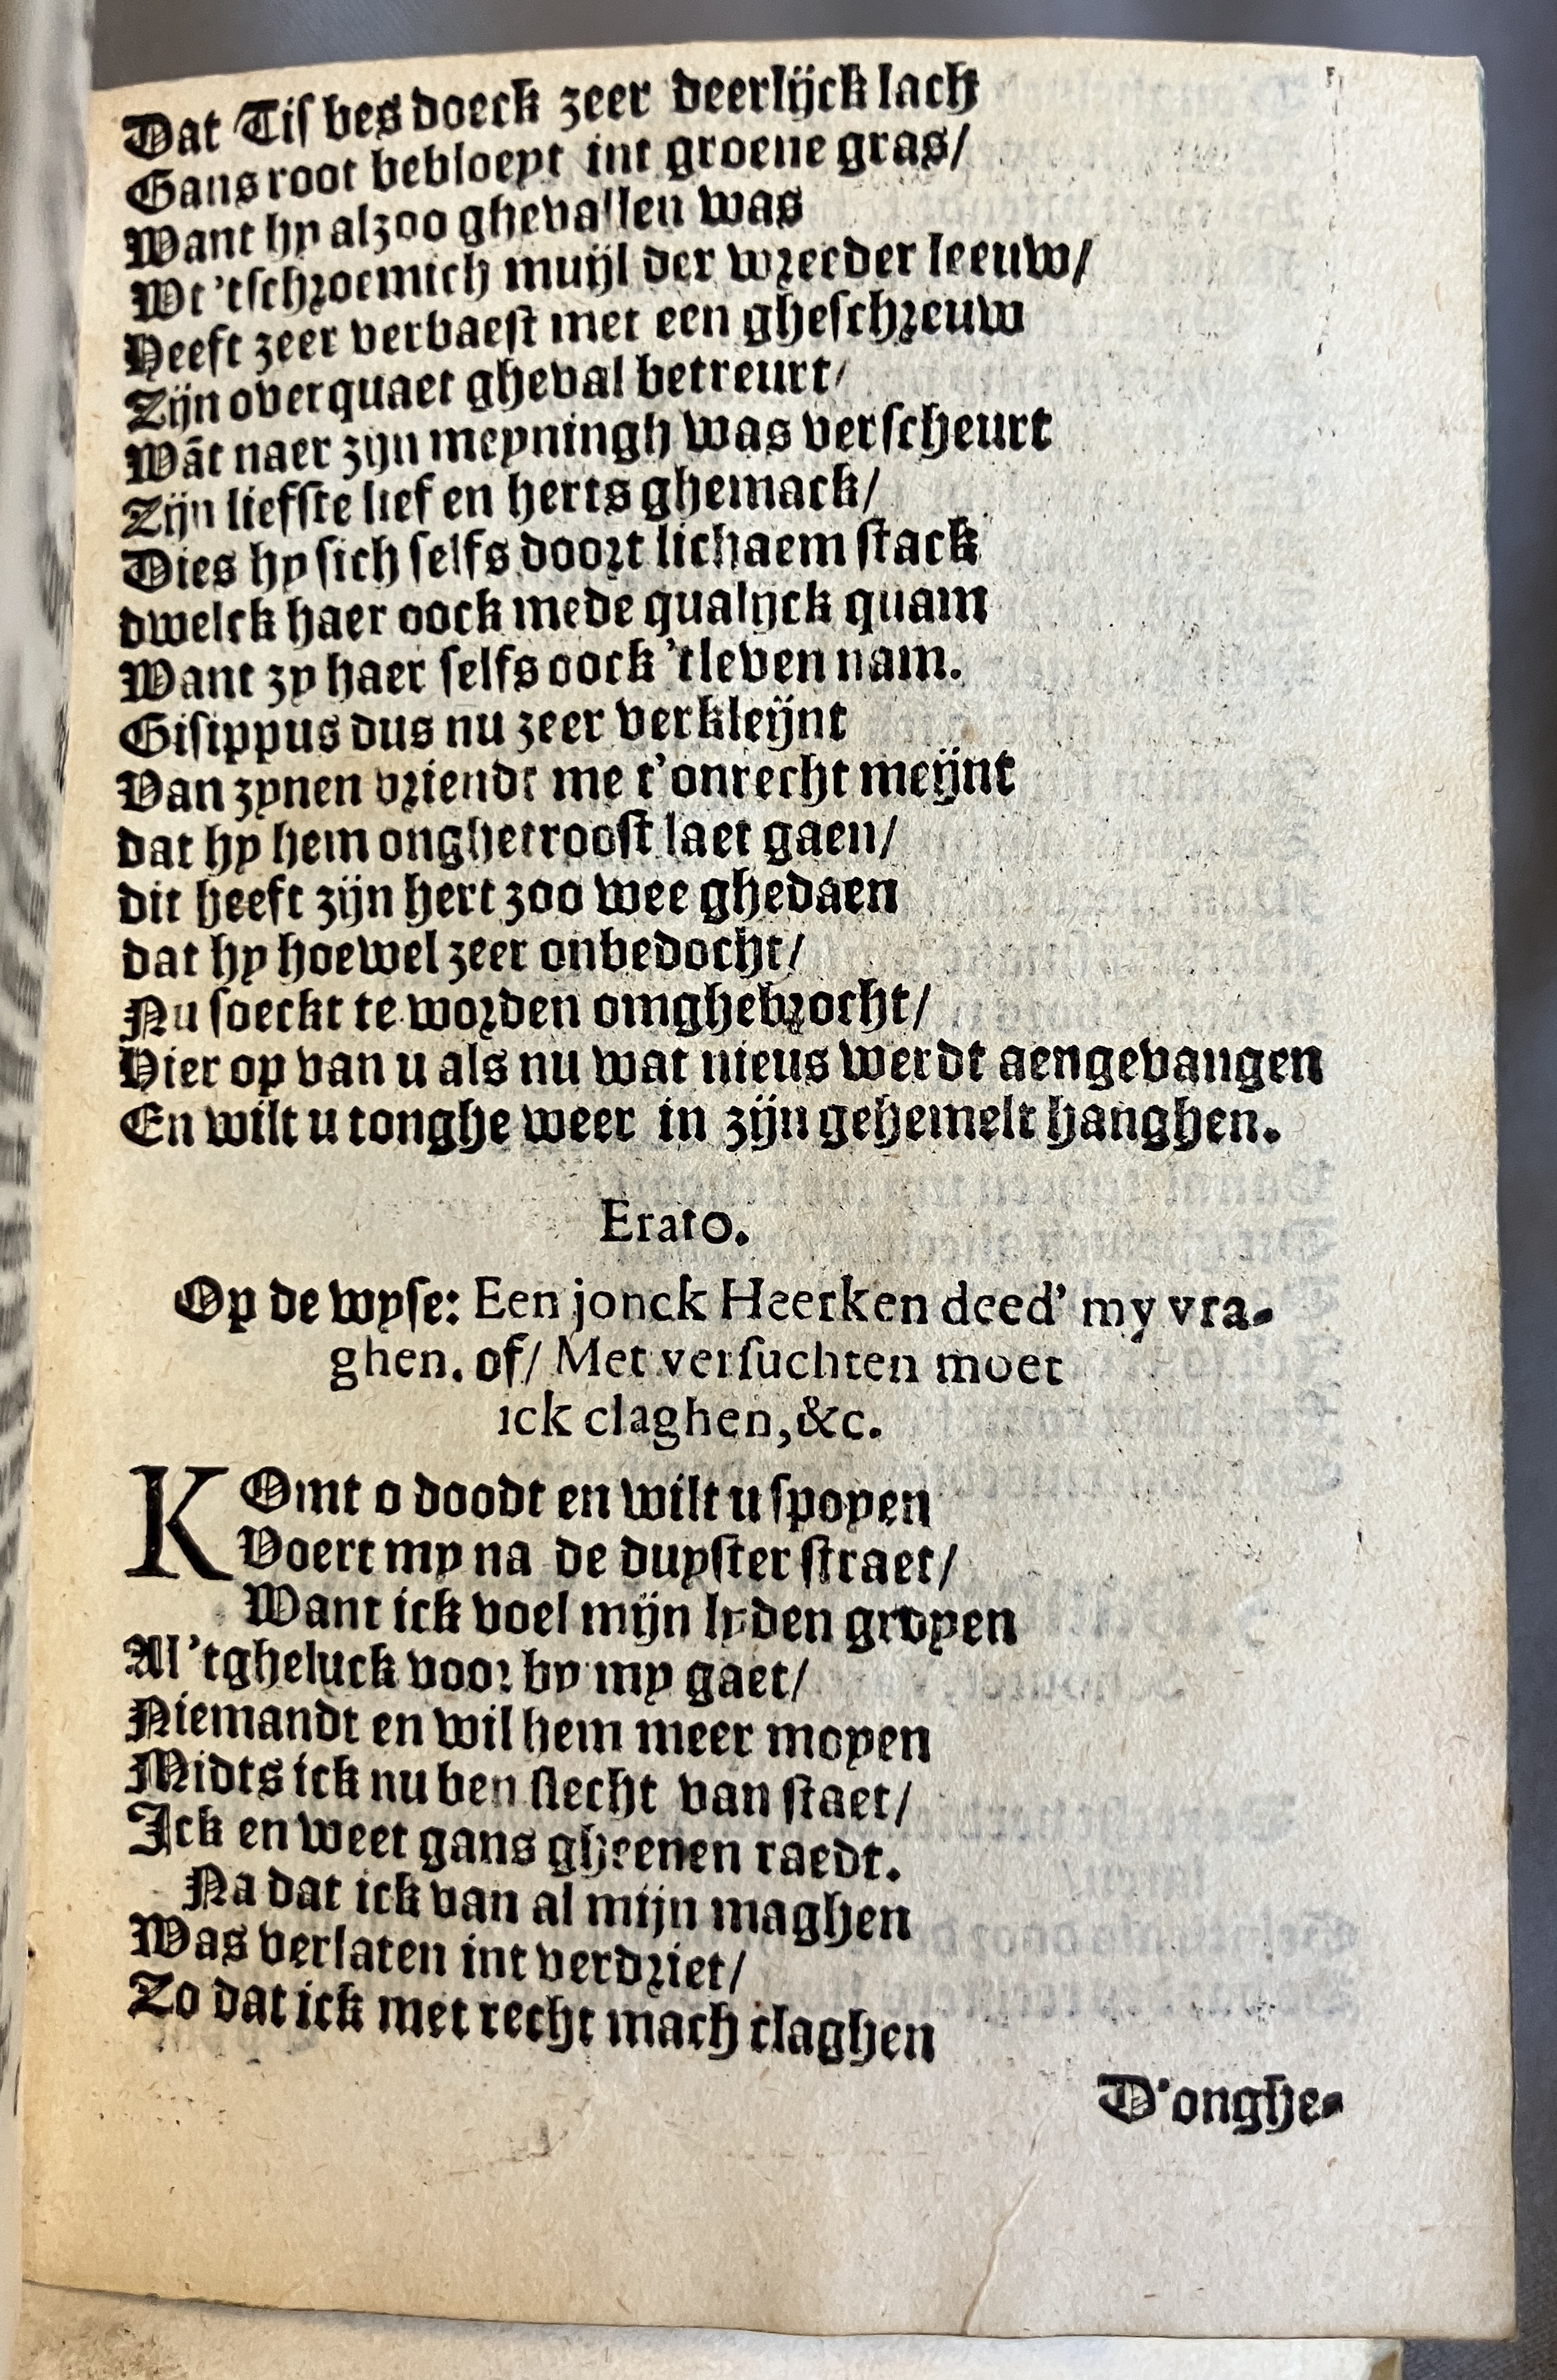 Dat Tisbes doeck zeer deerlijck lach
Gans root bebloeyt int groene gras/
Want hy alzoo ghevallen was
Wt 'tschroemich muijl der wreeder leeuw/
Heeft zeer verbaest met een gheschreuw
Zijn overquaet gheval betreurt/
Wãt naer zijn meyningh was verscheurt
Zijn liefste lief en herts ghemack/
Dies hy sich selfs doort lichaem stack
dwelck haer oock mede qualijck quam
Want zy haer selfs oock 'tleven nam.
Gisippus dus nu zeer verkleijnt
Van zynen vriendt me t'onrecht meijnt
dat hy hem onghetroost laet gaen/
dit heeft zijn hert zoo wee ghedaen
dat hy hoewel zeer onbedocht/
Nu soeckt te worden omghebrocht/
Hier op van u als nu wat nieus werdt aengevangen
En wilt u tonghe weer in zijn gehemelt hanghen.
Erato.
Op de wyse: Een jonck Heerken deed' my vra-
ghen. of/ Met versuchten moet
ick claghen, &c.
KOmt o doodt en wilt u spoyen
Voert my na de duyster straet/
Want ick voel mijn lyden groyen
Al 'tgheluck voor by my gaet/
Niemandt en wil hem meer moyen
Midts ick nu ben slecht van staet/
Ick en weet gans gheenen raedt.
Na dat ick van al mijn maghen
Was verlaten int verdriet/
Zo dat ick met recht mach claghen
D'onghe-